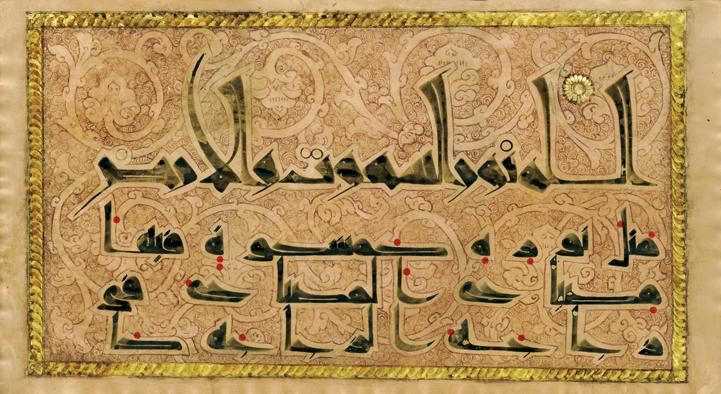 الله نور السموت والارض
مثل نوره كمشكوة فيها
مصباح المصباح في
زجاجة الزجاجة كا